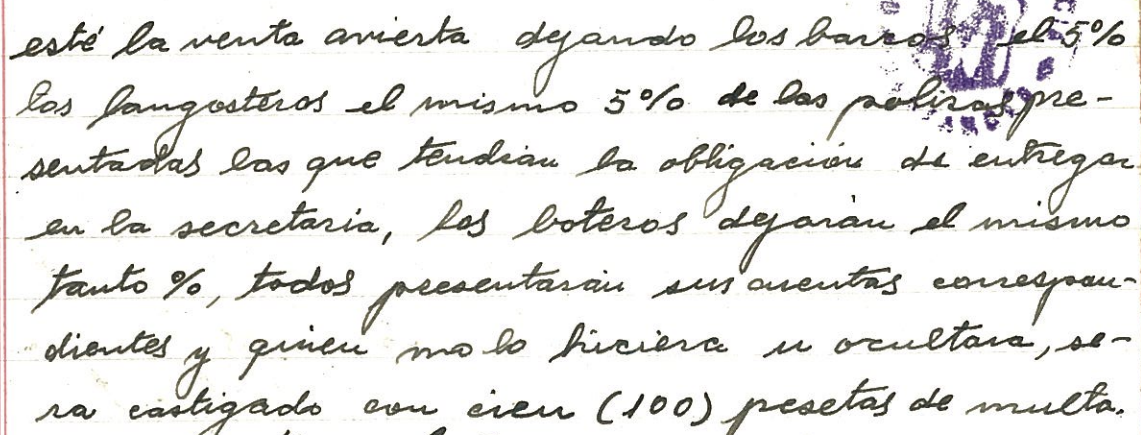 esté la venta avierta dejando los barcos el 5%
los langosteros el mismo 5% de las polizas pre-
sentadas las que tendian la obligación de entregar
en la secretaria, los boteros dejarán el mismo
tanto %, todos presentarán sus cuentas correspon-
dientes y quien no lo hiciera u ocultara, se-
ra castigado con cien (100) pesetas de multa.